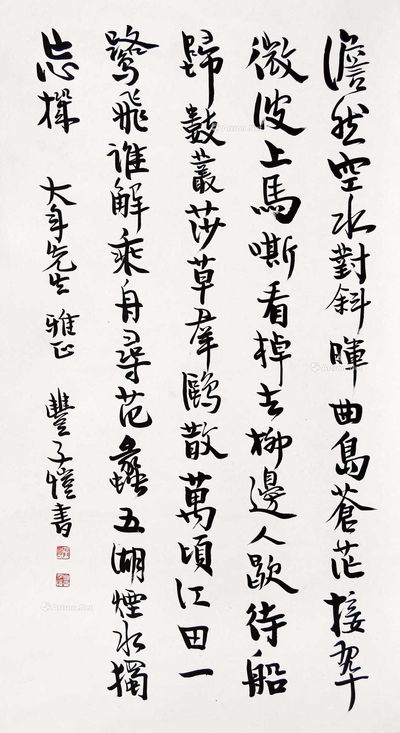 澹然空水對斜暉曲島蒼茫接翠
微波上馬嘶看棹去柳邊人歇待船
歸數叢莎草羣鷗散萬頃江田一
鷺飛誰解乘舟尋范蠡五湖煙水獨
忘機 大年先生 雅正 豐子愷書